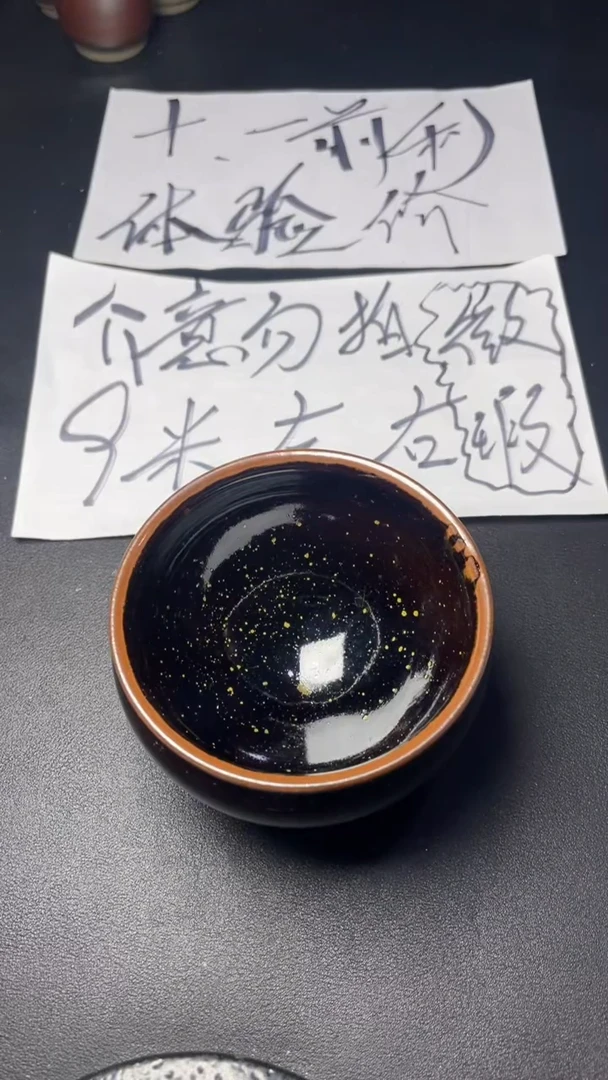 十、一前秒
体验价
介意勿拍微
9米左右瑕